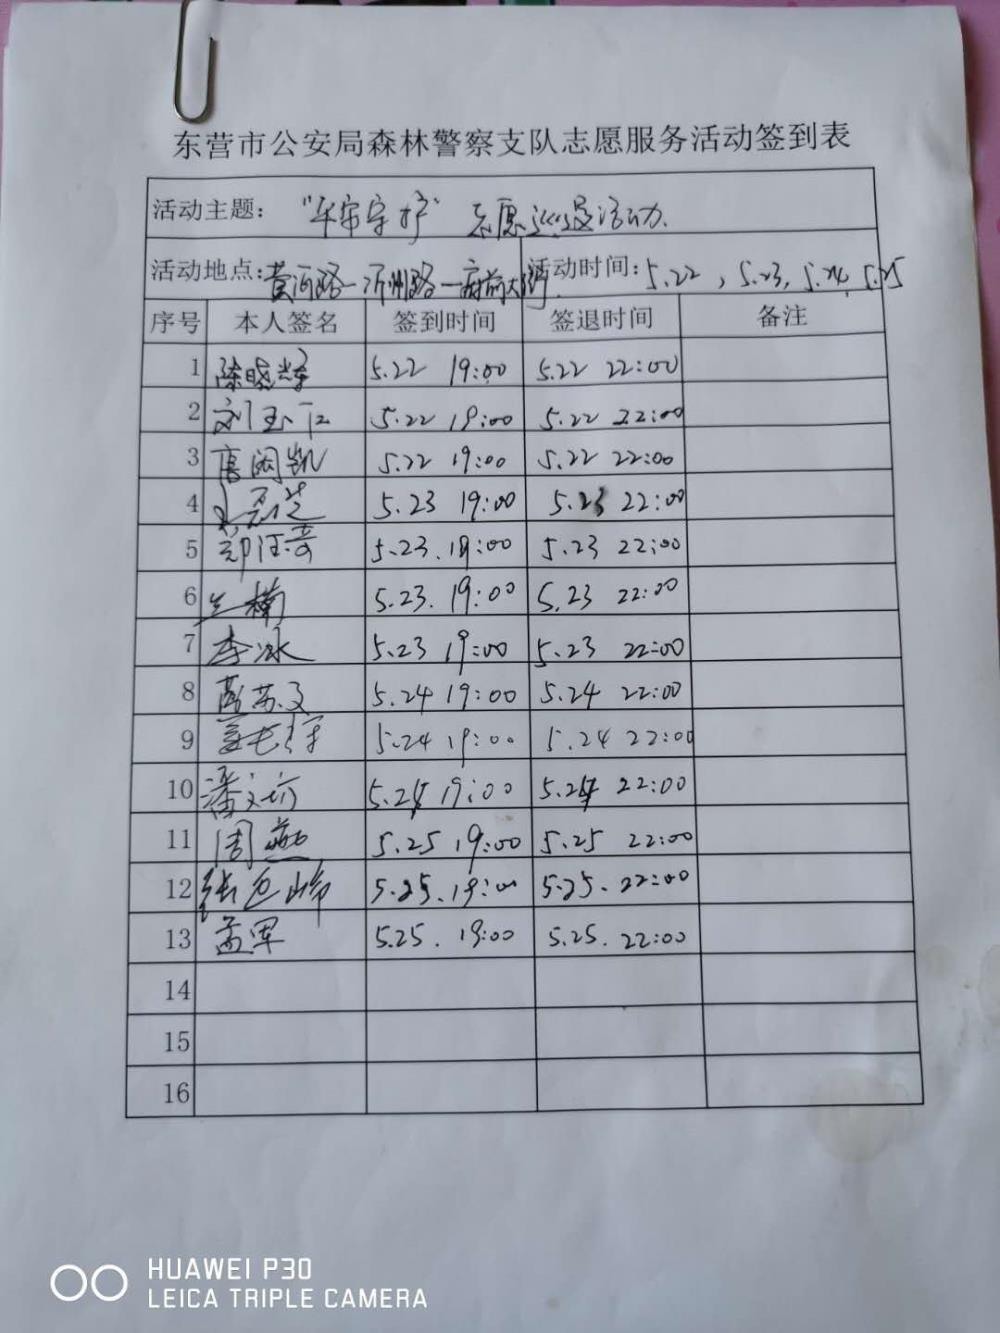 东营市公安局森林警察支队志愿服务活动签到表
活动主题： 志愿巡逻活动.
活动地点：黄河路—沂州路—府前大街 活动时间：5.22，5.23，5.24，5.25
序号 本人签名 签到时间 签退时间 备注
1 陈晓 5.22 19:00 5.22 22:00
2 刘玉 5.22 19:00 5.22 22:00
3 凯 5.22 19:00 5.22 22:00
4 5.23 19:00 5.23 22:00
5 郑 5.23. 19:00 5.23 22:00
6 兰楠 5.23. 19:00 5.23 22:00
7 李冰 5.23 19:00 5.23 22:00
8 苏文 5.24 19:00 5.24 22:00
9 5.24 19:00 5.24 22:00
10 潘文 19:00 22:00
11 周燕 5.25 19:00 5.25 22:00
12 张 5.25. 19:00 5.25. 22:00
13 孟军 5.25. 19:00 5.25. 22:00
14
15
16
HUAWEI P30
LEICA TRIPLE CAMERA